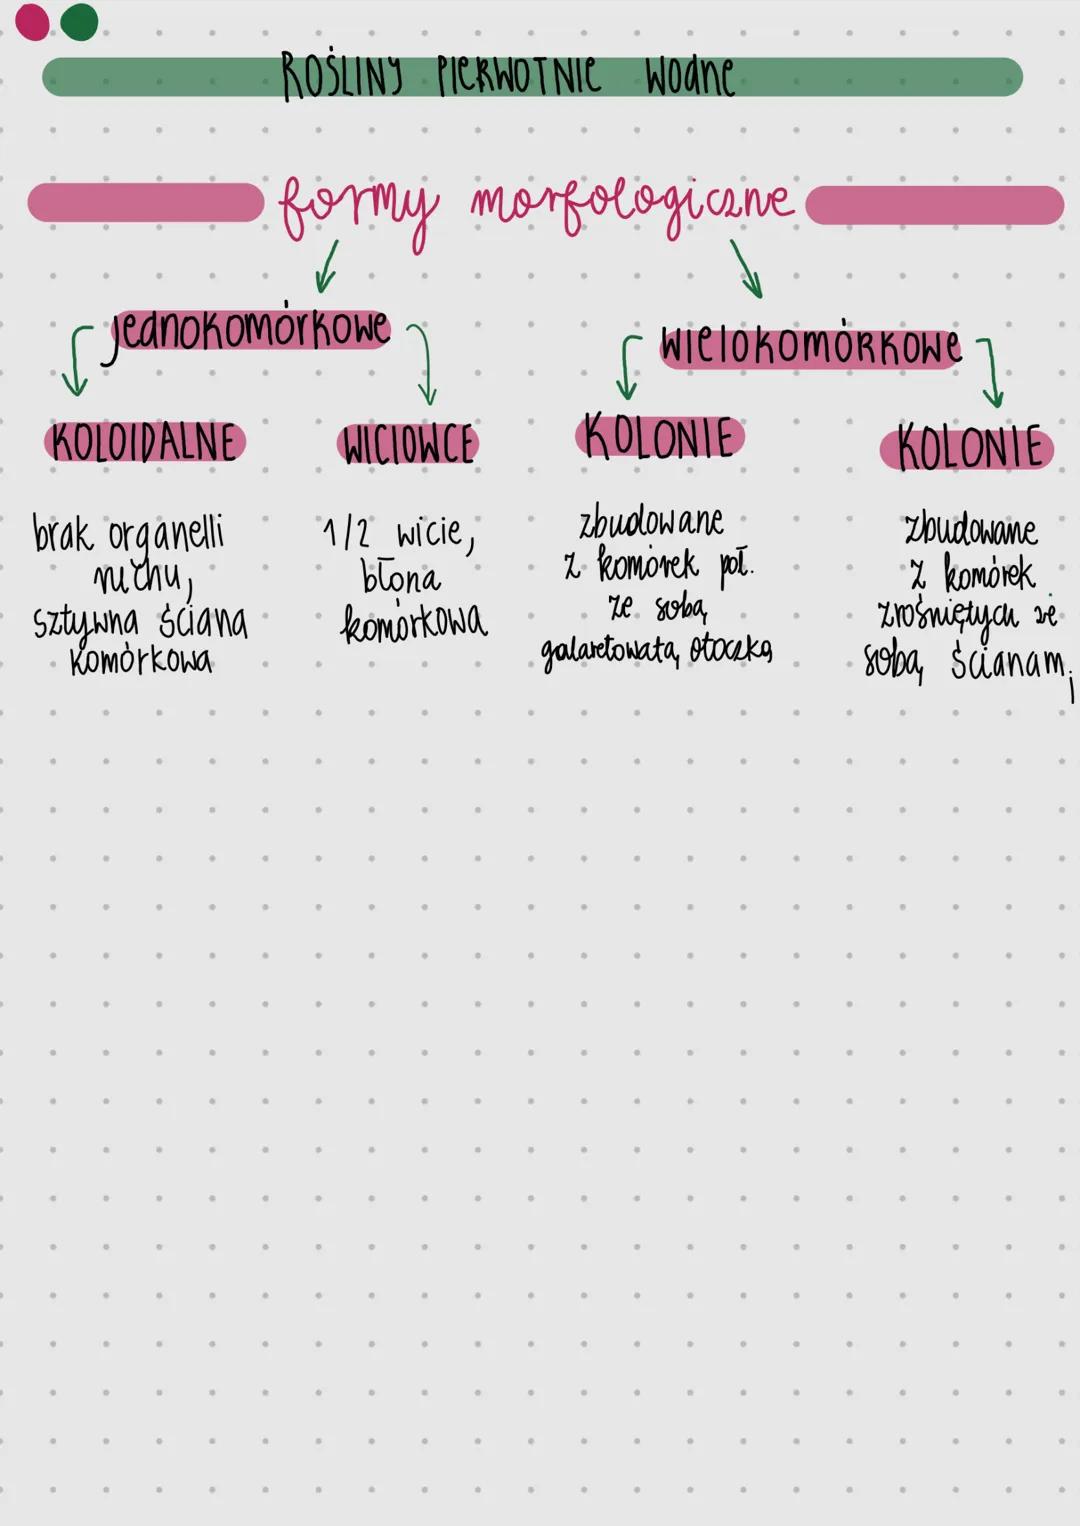 ROŚLINY PIERWOTNIE WODNE
formy morfologiczne
jednokomórkowe
wielokomórkowe
KOLOIDALNE
brak organelli
ruchu,
sztywna ściana
komórkowa
WICIOWCE
1/2 wicie,
błona
komórkowa
KOLONIE
zbudowane
z komórek poł.
ze sobą
galaretowatą otoczką
KOLONIE
zbudowane
z komórek
zrośniętych ze
sobą ścianami